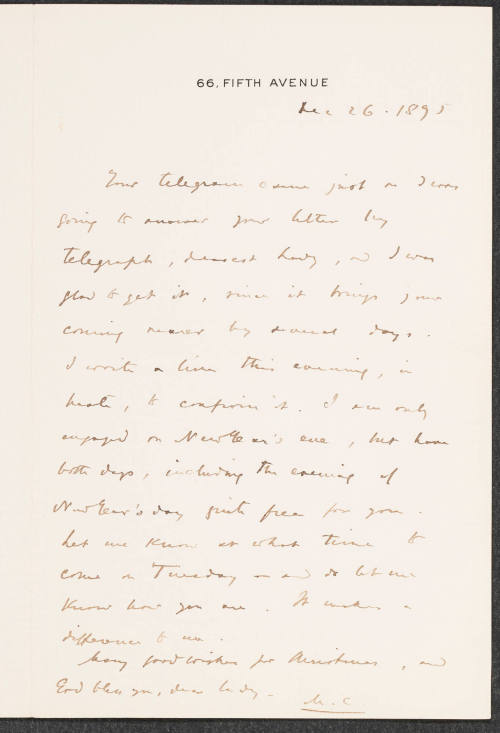 66, FIFTH AVENUE
Dec 26. 1895
Your telegram came just as I was
going to answer your letter by
telegraph, dearest lady, and I was
glad to get it, since it brings your
coming nearer by several days.
I write a line this evening, in
haste, to confirm it. I am only
engaged on New Year's eve, but have
both days, including the evening of
New Year's day quite free for you.
Let me know at what time to
come on Tuesday and do let me
know how you are. It makes a
difference to me.
Many good wishes for Christmas, and
God bless you, dear lady.
M.C